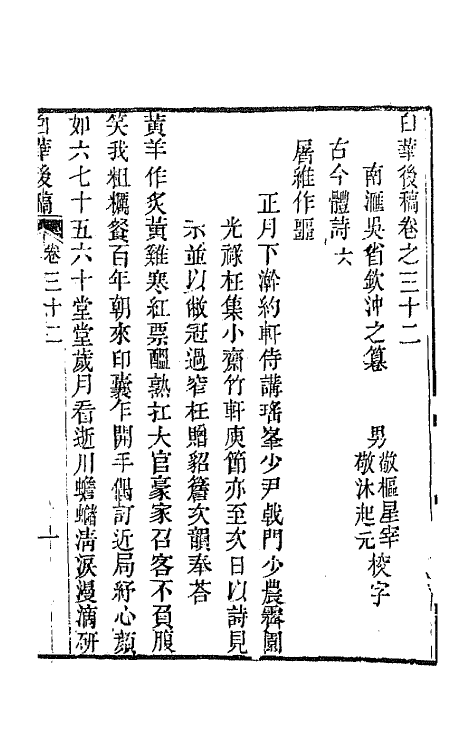 白華後稿卷之三十二
南滙吳省欽沖之纂
男敬樞星宰
敬沐起元
校字
古今體詩六
屠維作噩
正月下澣約軒侍講瑤峯少尹戟門少農霽園
光祿枉集小齋竹軒庾節亦至次日以詩見
示並以敝冠過窄枉贈貂簷次韻奉荅
黃羊作炙黃雞寒紅票醞熟扛大官豪家召客不負腹
笑我粗糲餐百年朝來印囊乍開手偶訂近局紓心顏
如六七十五六十堂堂歲月看逝川蟾蜍淸淚漫滴硏
白華後稿
卷三十二
一